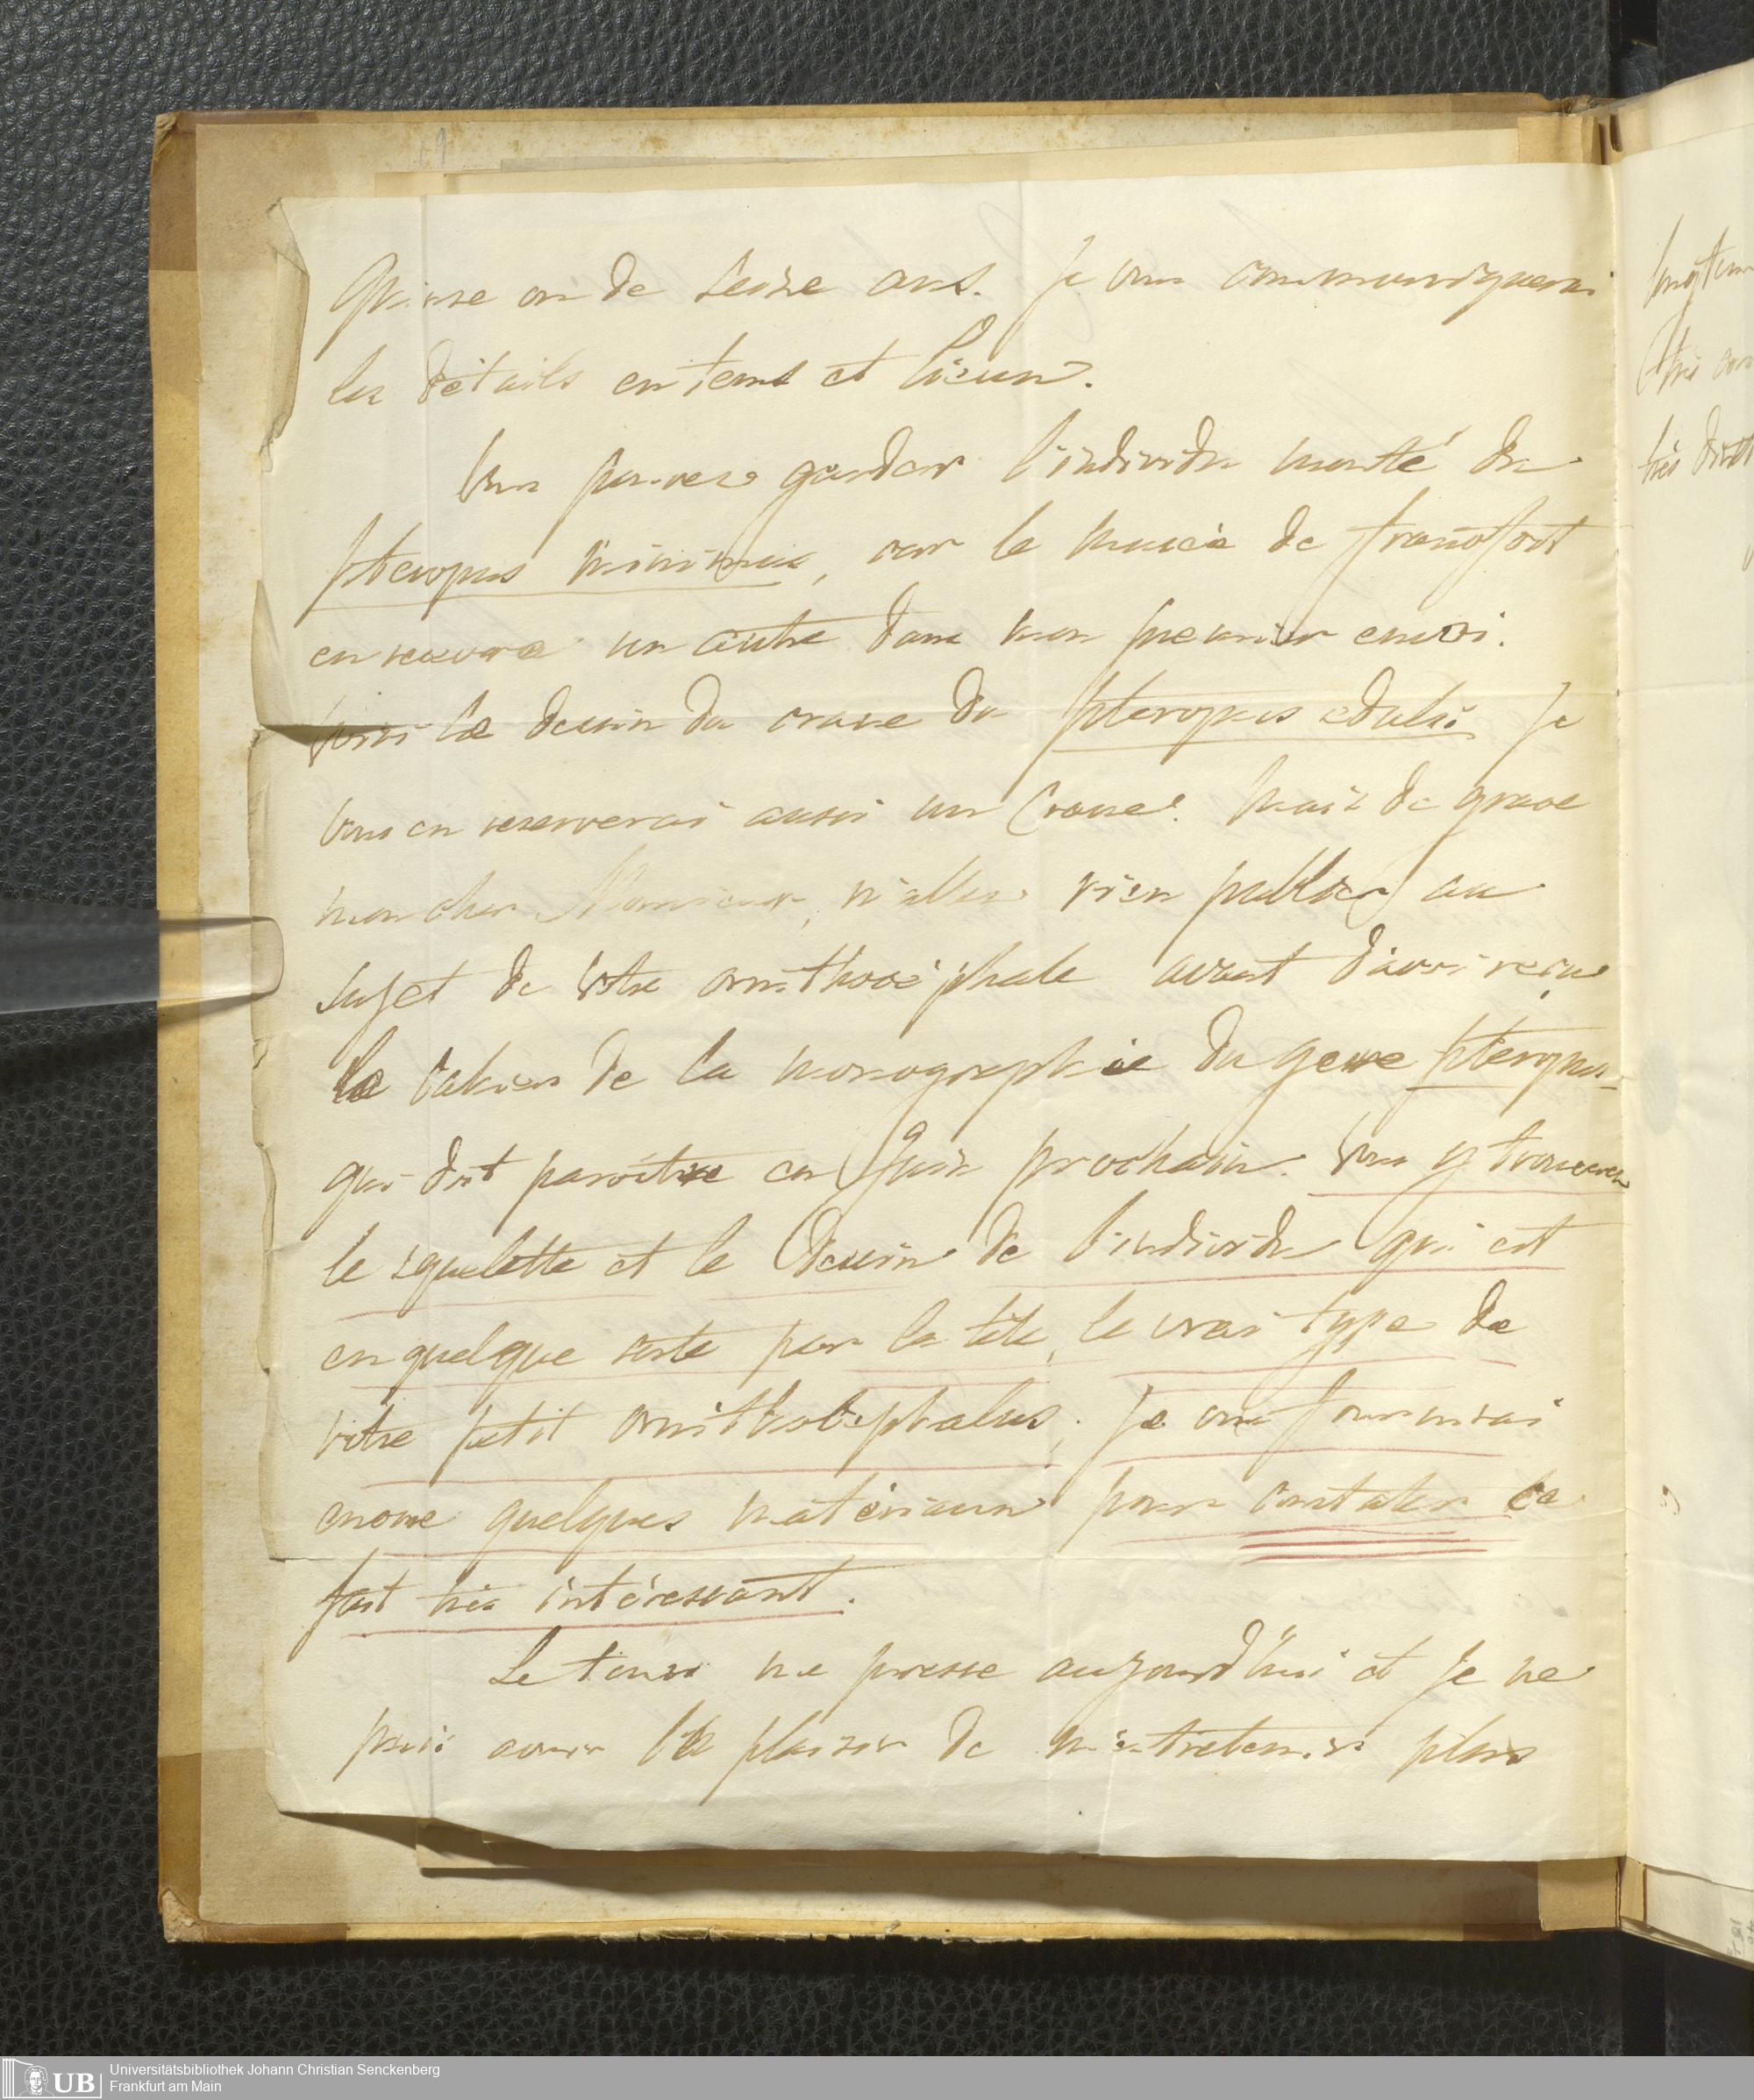 Quinze ou de seize ans. Je vous communiquerai
les détails en tems et lieux.
Vous pouvez garder l'individu monté du
Pteropus minimus, car le musée de francfort
en recevra un autre dans mon premier envoi.
Voici le dessin du crane du Pteropus edulis je
vous en reserverai aussi un Crane. Mais de grace
mon cher Monsieur, n'allez rien publier au
sujet de votre ornithocéphale avant d'avoir reçu
le Cahier de la monographie du genre Pteropus
qui doit paroître en Juin prochain. Vous y trouverez
le squelette et le Dessin de l'individu qui est
en quelque sorte par la tête, le vrai type de
votre petit ornithocephalus. Je vous fournirai
encore quelques matériaux pour constater ce
fait très intéressant.
Le tems me presse aujourd'hui et je ne
puis avoir le plaisir de m'entretenir plus
longtem
très
UB
Universitätsbibliothek Johann Christian Senckenberg
Frankfurt am Main